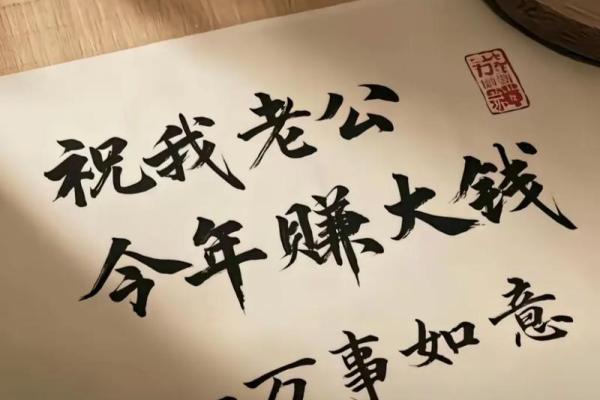 祝我老公
今年赚大钱
万事如意